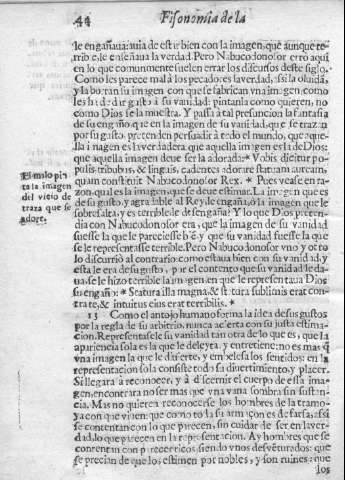 44 Fisonomia de la
le engañaua: auia de estar bien con la imagen, que aunque te-
rrible, le enseñaua la verdad. Pero Nabucodonosor erro aqui
en lo que comunmente suelen errar los discursos deste siglo.
Como les parece mal a los pecadores la verdad, assi la oluidã,
y la borran su imagen con que se fabrican vna imagen como
les ha de dar gusto a su vanidad: pintanla como quieren, no
como Dios se la muestra. Y passa a tal presuncion la fantasia
de su engaño, que en la imagen de su vanidad, que se trazan
por su gusto, pretenden persuadir à todo el mundo, que aque-
lla imagen es la verdadera que aquella imagen es la de Dios:
que aquella imagen deue ser la adorada: * Vobis dicitur po-
pulis, tribubus, & linguis, cadentes adorate statuam auream,
quam constituit Nabucodonosor Rex. * Pues vease en ra-
zon, qual es la imagen, que se deue estimar. La imagen que es
de su gusto, y agradable al Rey le engaña, ò la imagen que le
sobresalta, y es terrible le desengaña? Y lo que Dios preten-
dia con Nabucodonosor era, que la imagen de su vanidad
fuesse la que le pareciesse biẽ, y que su vanidad fuesse la que
se le representasse terrible. Pero Nabucodonosor vno y otro
lo discurriò al contrario como estaua bien con su vanidad, y
esta le era de su gusto, por el contento que su vanidad le da-
ua, se le hizo terrible la imagen en que le representaua Dios
su engaño: * Statura illa magna, & statura sublimis erat con-
tra te, & intuitus eius erat terribilis. *
13 Como el antojo humano forma la idea de sus gustos
por la regla de su arbitrio, nunca acierta con su justa estima-
cion. Representasele su vanidad tan otra de lo que es, que la
apariencia sola es la que le deleyta, y entretiene: no es mas q̃
vna imagen la que le diuierte, y embelesa los sentidos: en la
representacion sola consiste todo su diuertimiento, y placer.
Si llegara à reconocer, y à discernir el cuerpo de essa ima-
gen, encontrara no ser mas que vna vana sombra sin sustan-
cia. Mas no quieren reconocerse los hombres de la tramo-
ya con que viuen: que como toda su armaçon es de farsa, assi
se contentan con lo que parecen, sin cuidar de ser en la ver-
dad, lo que parecen en la representacion. Ay hombres que se
contentan con parecer ricos, siendo vnos desventurados: que
se precian de que los estimen por nobles, y son ruines: que
los
El malo pin
ta la imagen
del vicio de
traza que se
adore.